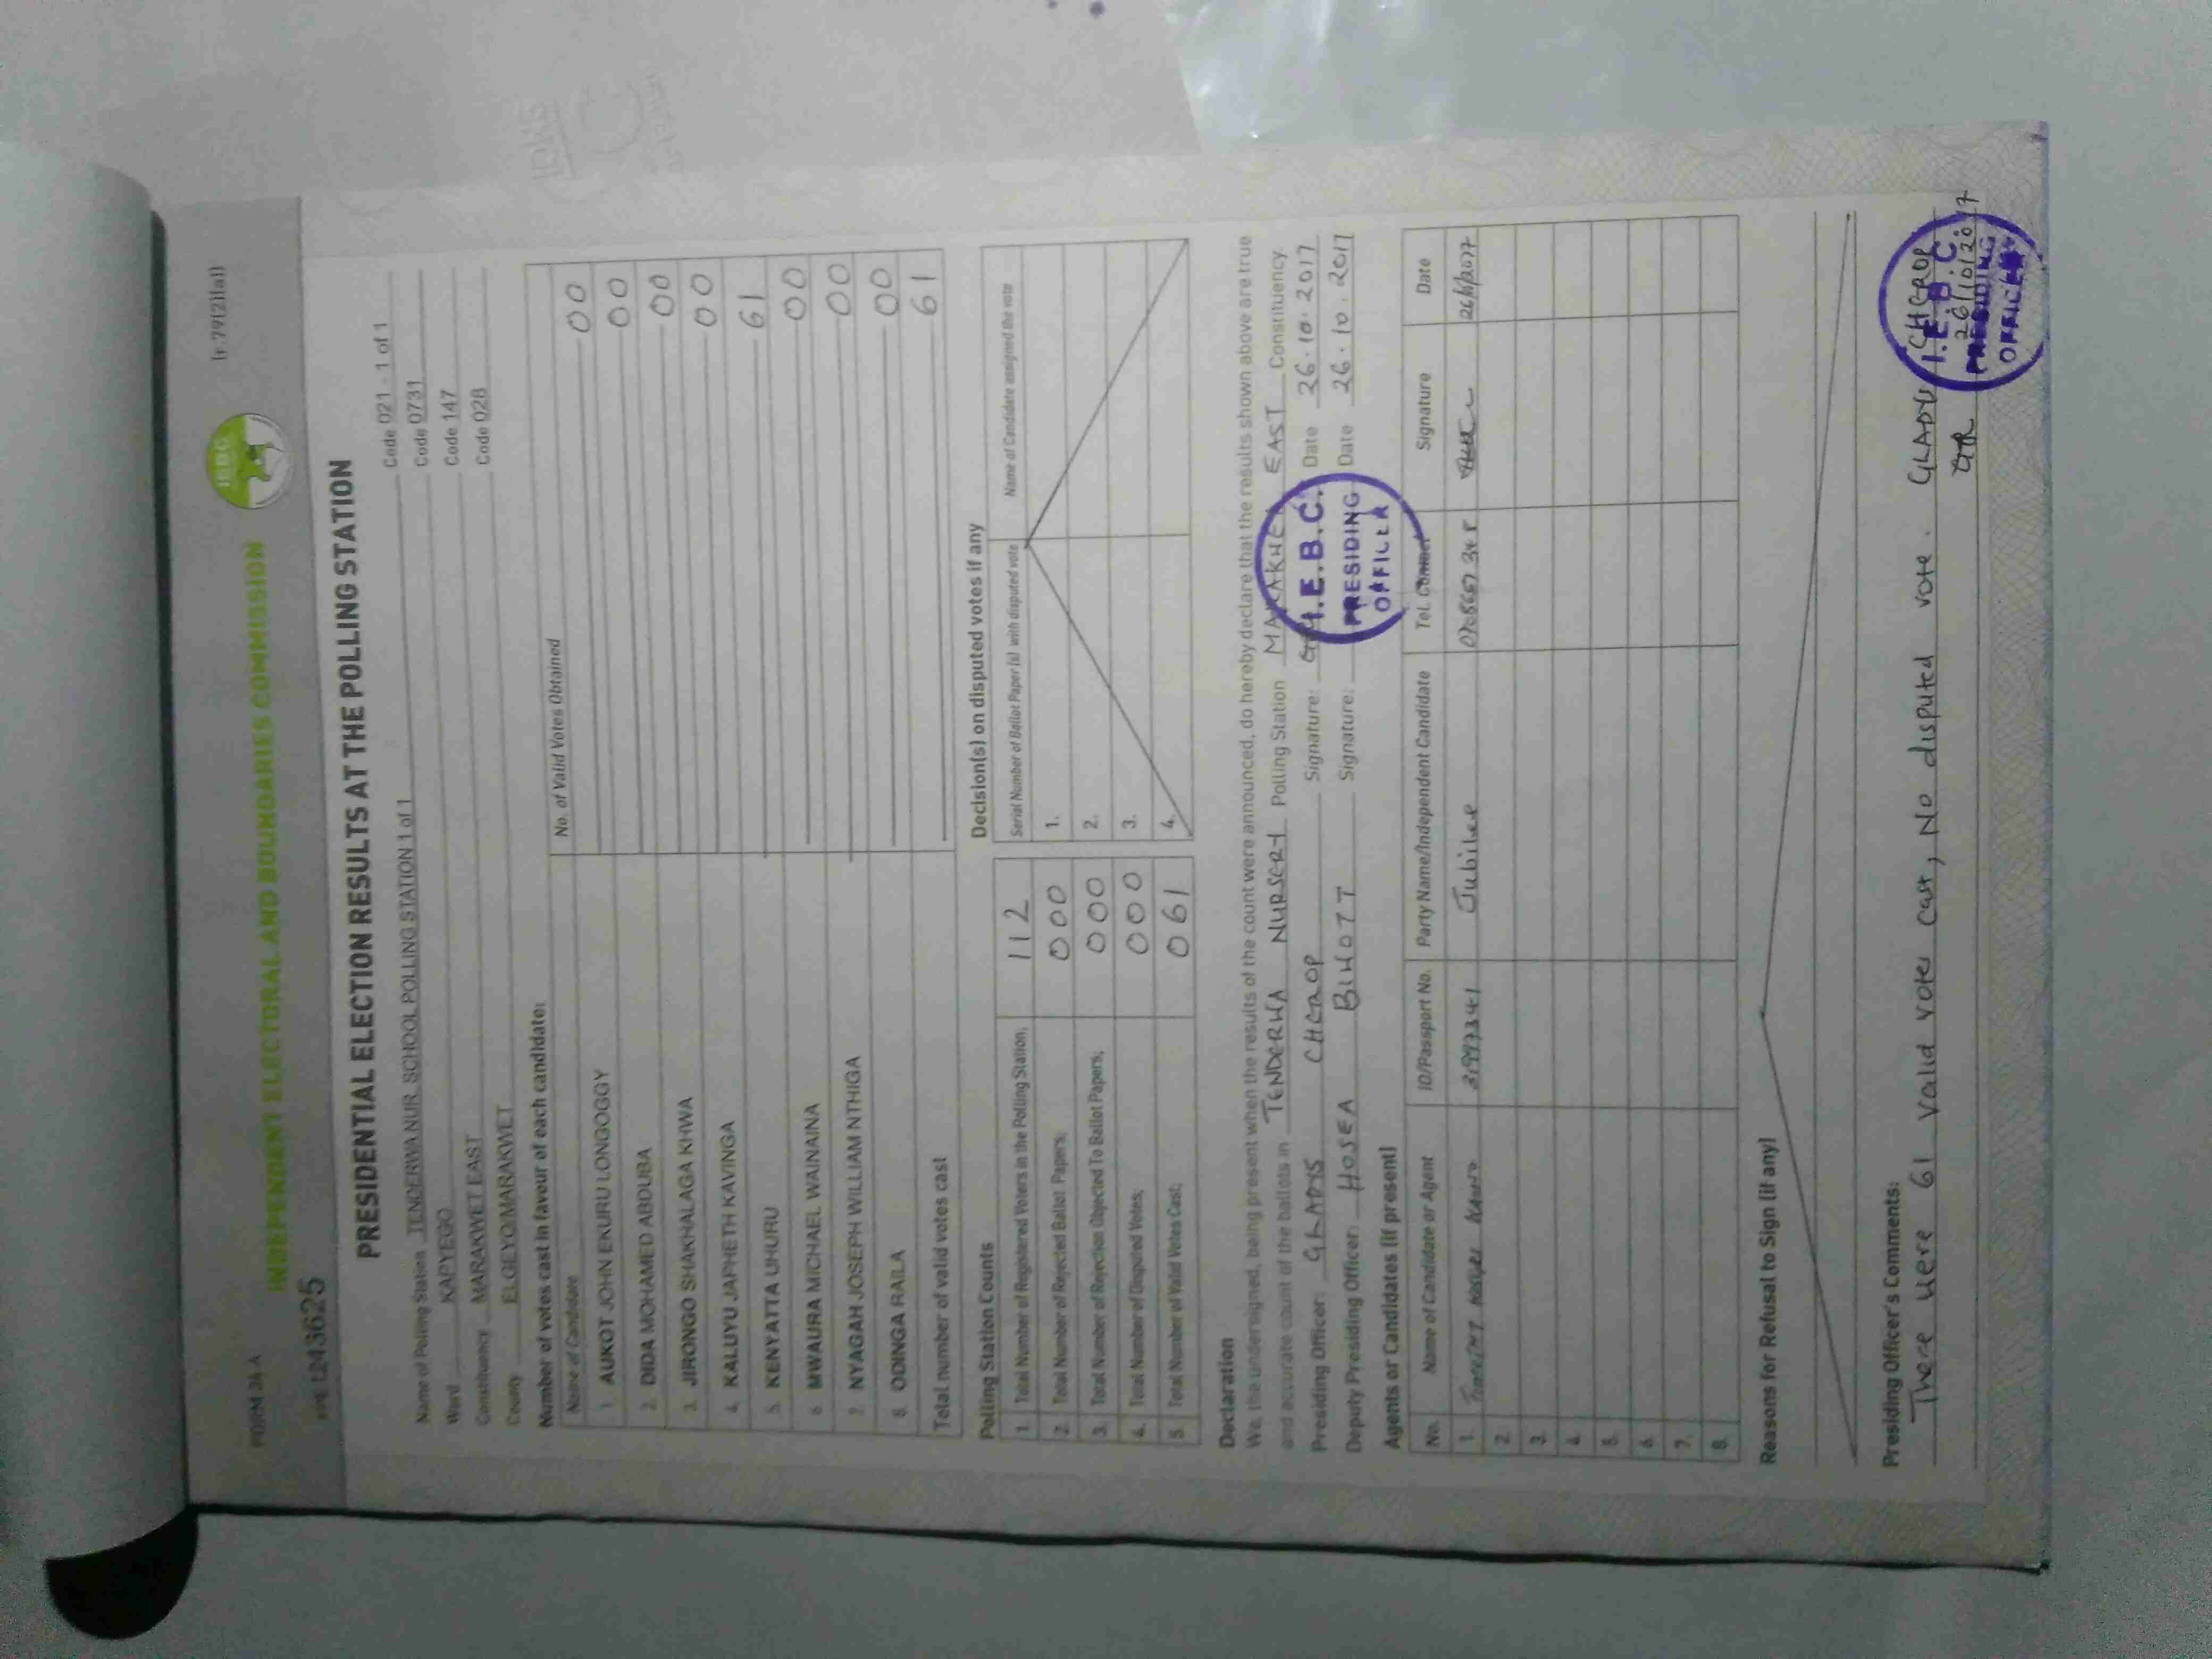 FORM 34 A [r.79(2)(a)]
INDEPENDENT ELECTORAL AND BOUNDARIES COMMISSION
IEBC
PRESIDENTIAL ELECTION RESULTS AT THE POLLING STATION
Name of Polling Station TENDERWA NUR. SCHOOL POLLING STATION 1 of 1 Code 021 - 1 of 1
Ward KAPYEGO Code 0731
Constituency MARAKWET EAST Code 147
County ELGEYO/MARAKWET Code 028
Number of votes cast in favour of each candidate:
Name of Candidate No. of Valid Votes Obtained
1. AUKOT JOHN EKURU LONGOGGY 00
2. DIDA MOHAMED ABDUBA 00
3. JIRONGO SHAKHALAGA KHWA 00
4. KALUYU JAPHETH KAVINGA 00
5. KENYATTA UHURU 61
6. MWAURA MICHAEL WAINAINA 00
7. NYAGAH JOSEPH WILLIAM NTHIGA 00
8. ODINGA RAILA 00
Total number of valid votes cast 61
Polling Station Counts
1. Total Number of Registered Voters in the Polling Station; 112
2. Total Number of Rejected Ballot Papers; 000
3. Total Number of Rejection Objected To Ballot Papers; 000
4. Total Number of Disputed Votes; 000
5. Total Number of Valid Votes Cast; 061
Decision(s) on disputed votes if any
Serial Number of Ballot Paper (s) with disputed vote Name of Candidate assigned the vote
1.
2.
3.
4.
Declaration
We, the undersigned, being present when the results of the count were announced, do hereby declare that the results shown above are true
and accurate count of the ballots in TENDERWA NURSERY Polling Station MARAKWET EAST Constituency.
Presiding Officer: GLADYS CHEROP Signature: Date 26.10.2017
Deputy Presiding Officer: HOSEA BIWOTT Signature: Date 26.10.2017
I.E.B.C.
PRESIDING
OFFICER
Agents or Candidates (if present)
No. Name of Candidate or Agent ID/Passport No. Party Name/Independent Candidate Tel. Contact Signature Date
1. Jubilee
2.
3.
4.
5.
6.
7.
8.
Reasons for Refusal to Sign (if any)
Presiding Officer's Comments:
There were 61 valid votes cast, No disputed vote. GLADYS CHEROP
26/10/2017
I.E.B.C.
PRESIDING
OFFICER